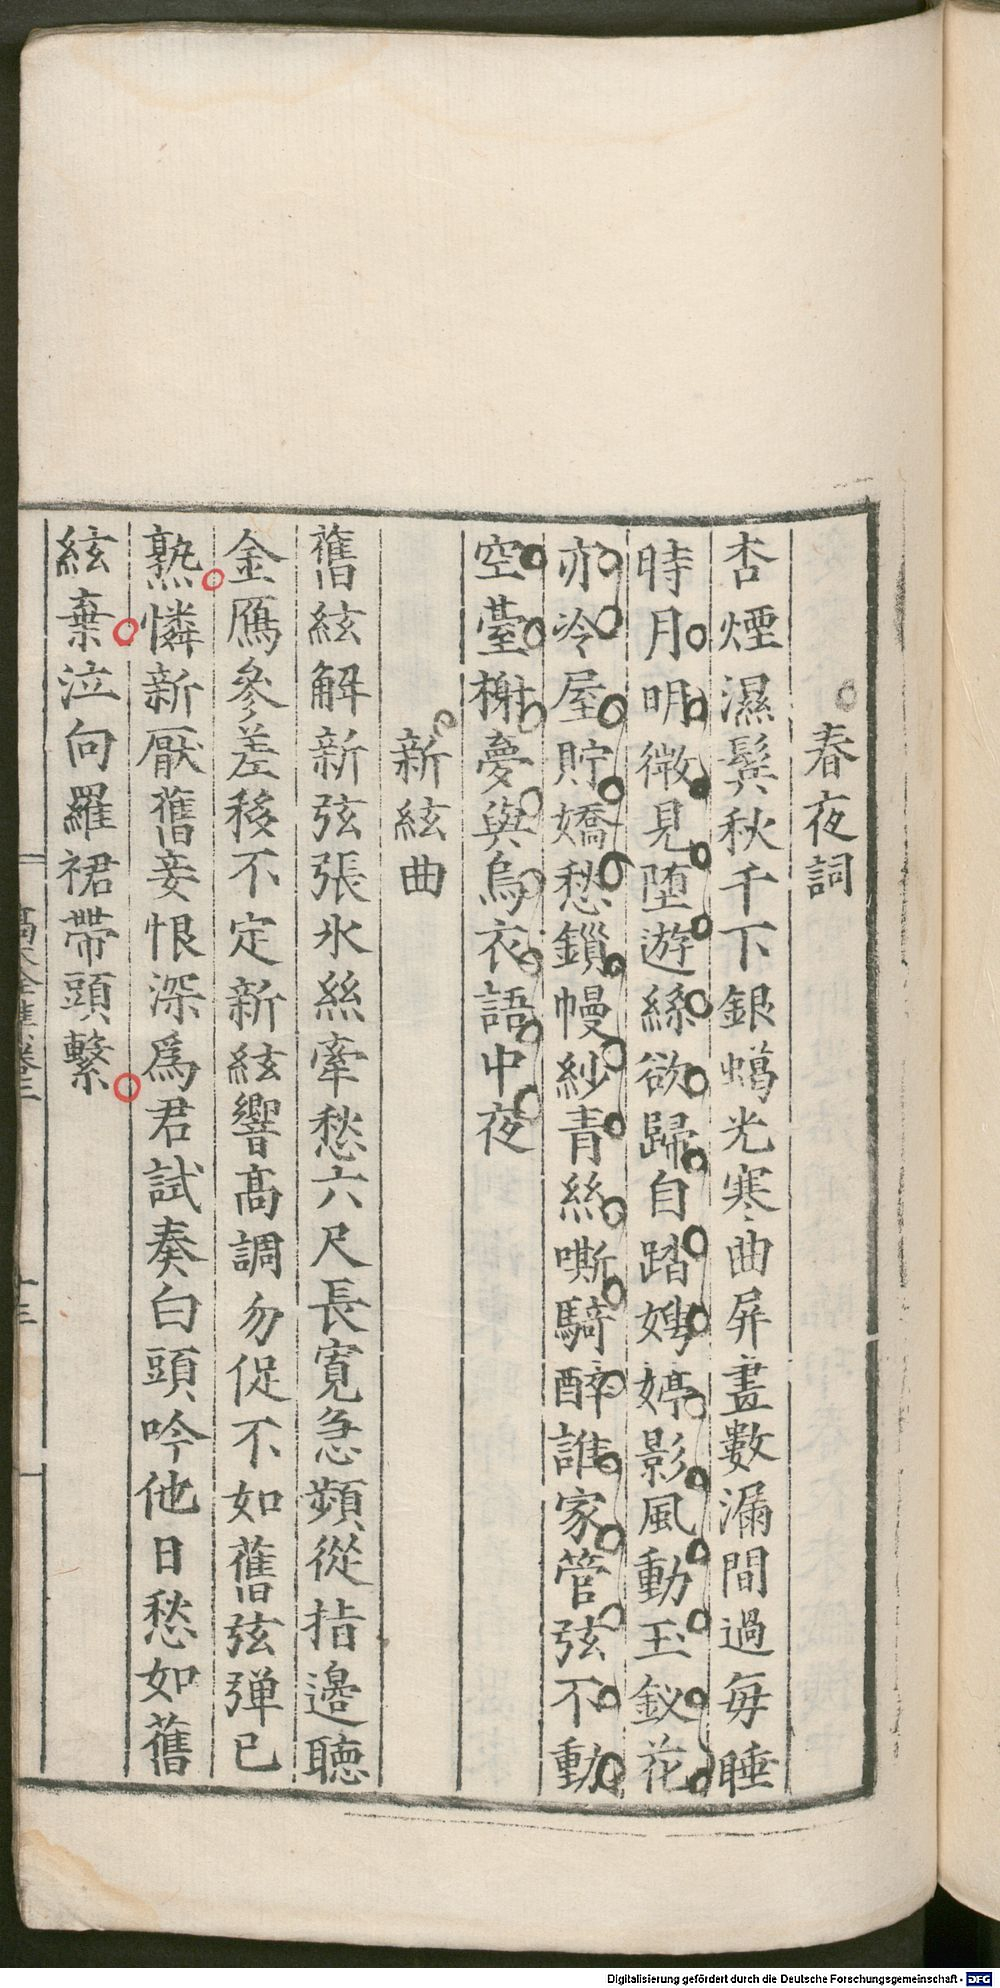 春夜詞
杏煙濕鬓秋千下銀蝎光寒曲屏晝數漏間過每睡
時月明微見墮遊絲欲歸自踏娉婷影風動玉釵花
亦冷屋貯嬌愁鎖幔紗青絲嘶騎醉誰家管弦不動
空臺榭夢與烏衣語中夜
新絃曲
舊絃解新弦張氷絲牽愁六尺長寬急頻從指邊聽
金鴈參差移不定新絃響髙調勿促不如舊弦弹已
熟憐新厭舊妾恨深爲君試奏白頭吟他日愁如舊
絃棄泣向羅裙帶頭繫
卷三
十三
Digitalisierung gefördert durch die Deutsche Forschungsgemeinschaft - DFG